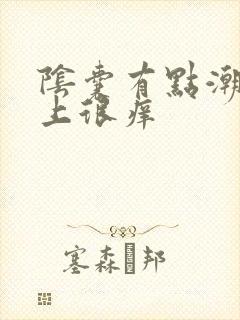 陰囊有點潮
上很痒
塞森邦